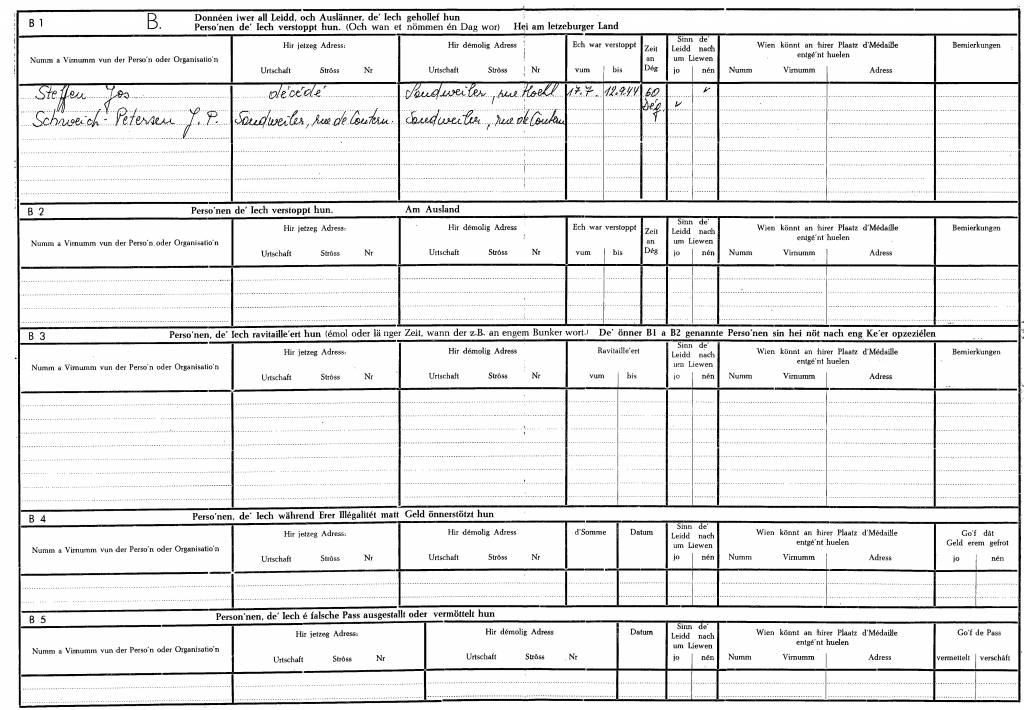 B 1 B. Donnéen iwer all Leidd, och Auslänner, de' Iech gehollef hun
Perso'nen de' Iech verstoppt hun. (Och wan et nömmen én Dag wor) Hei am letzeburger Land
Numm a Virnumm vun der Perso'n oder Organisatio'n Hir jetzeg Adress: Hir démolig Adress Ech war verstoppt Zeit an Dég Sinn de' Leidd nach um Liewen Wien könnt an hirer Plaatz d'Médaille entgé'nt huelen Bemierkungen
Urtschaft Ströss Nr Urtschaft Ströss Nr vum bis jo nén Numm Virnumm Adress
Steffen Jos décédé Sandweiler, rue Hoehl 17.7. 12.9.44 60 Dég. v
Schweich-Petersen J. P. Sandweiler, rue de Contern. Sandweiler, rue de Contern v
B 2 Perso'nen de' Iech verstoppt hun. Am Ausland
Numm a Virnumm vun der Perso'n oder Organisatio'n Hir jetzeg Adress: Hir démolig Adress Ech war verstoppt Zeit an Dég Sinn de' Leidd nach um Liewen Wien könnt an hirer Plaatz d'Médaille entgé'nt huelen Bemierkungen
Urtschaft Ströss Nr Urtschaft Ströss Nr vum bis jo nén Numm Virnumm Adress
B 3 Perso'nen, de' Iech ravitaille'ert hun (émol oder länger Zeit, wann der z.B. an engem Bunker wort.) De' önner B1 a B2 genannte Perso'nen sin hei nöt nach eng Ke'er opzeziélen
Numm a Virnumm vun der Perso'n oder Organisatio'n Hir jetzeg Adress: Hir démolig Adress Ravitaille'ert Sinn de' Leidd nach um Liewen Wien könnt an hirer Plaatz d'Médaille entgé'nt huelen Bemierkungen
Urtschaft Ströss Nr Urtschaft Ströss Nr vum bis jo nén Numm Virnumm Adress
B 4 Perso'nen, de' Iech während Erer Illégalitét matt Geld önnerstötzt hun
Numm a Virnumm vun der Perso'n oder Organisatio'n Hir jetzeg Adress: Hir démolig Adress d'Somme Datum Sinn de' Leidd nach um Liewen Wien könnt an hirer Plaatz d'Médaille entgé'nt huelen Go'f dât Geld erem gefrot
Urtschaft Ströss Nr Urtschaft Ströss Nr jo nén Numm Virnumm Adress jo nén
B 5 Person'nen, de' Iech é falsche Pass ausgestallt oder vermöttelt hun
Numm a Virnumm vun der Perso'n oder Organisatio'n Hir jetzeg Adress: Hir démolig Adress Datum Sinn de' Leidd nach um Liewen Wien könnt an hirer Plaatz d'Médaille entgé'nt huelen Go'f de Pass
Urtschaft Ströss Nr Urtschaft Ströss Nr jo nén Numm Virnumm Adress vermettelt verschâft